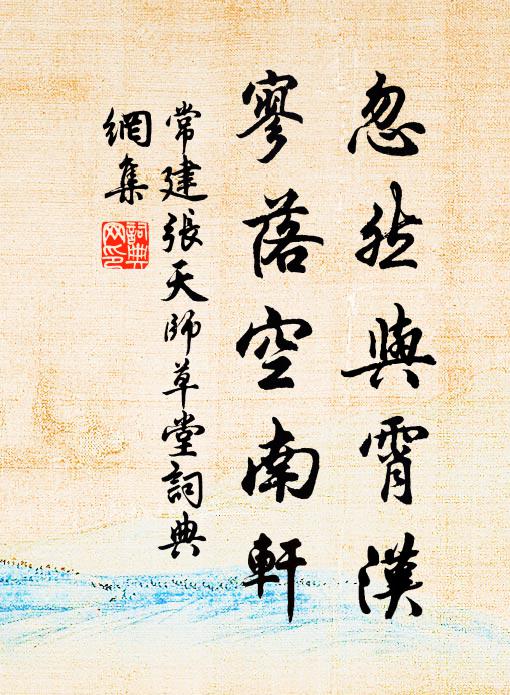 忽然與霄漢
寥落空南軒
常建張天師草堂詞典
網集
詞典
网印